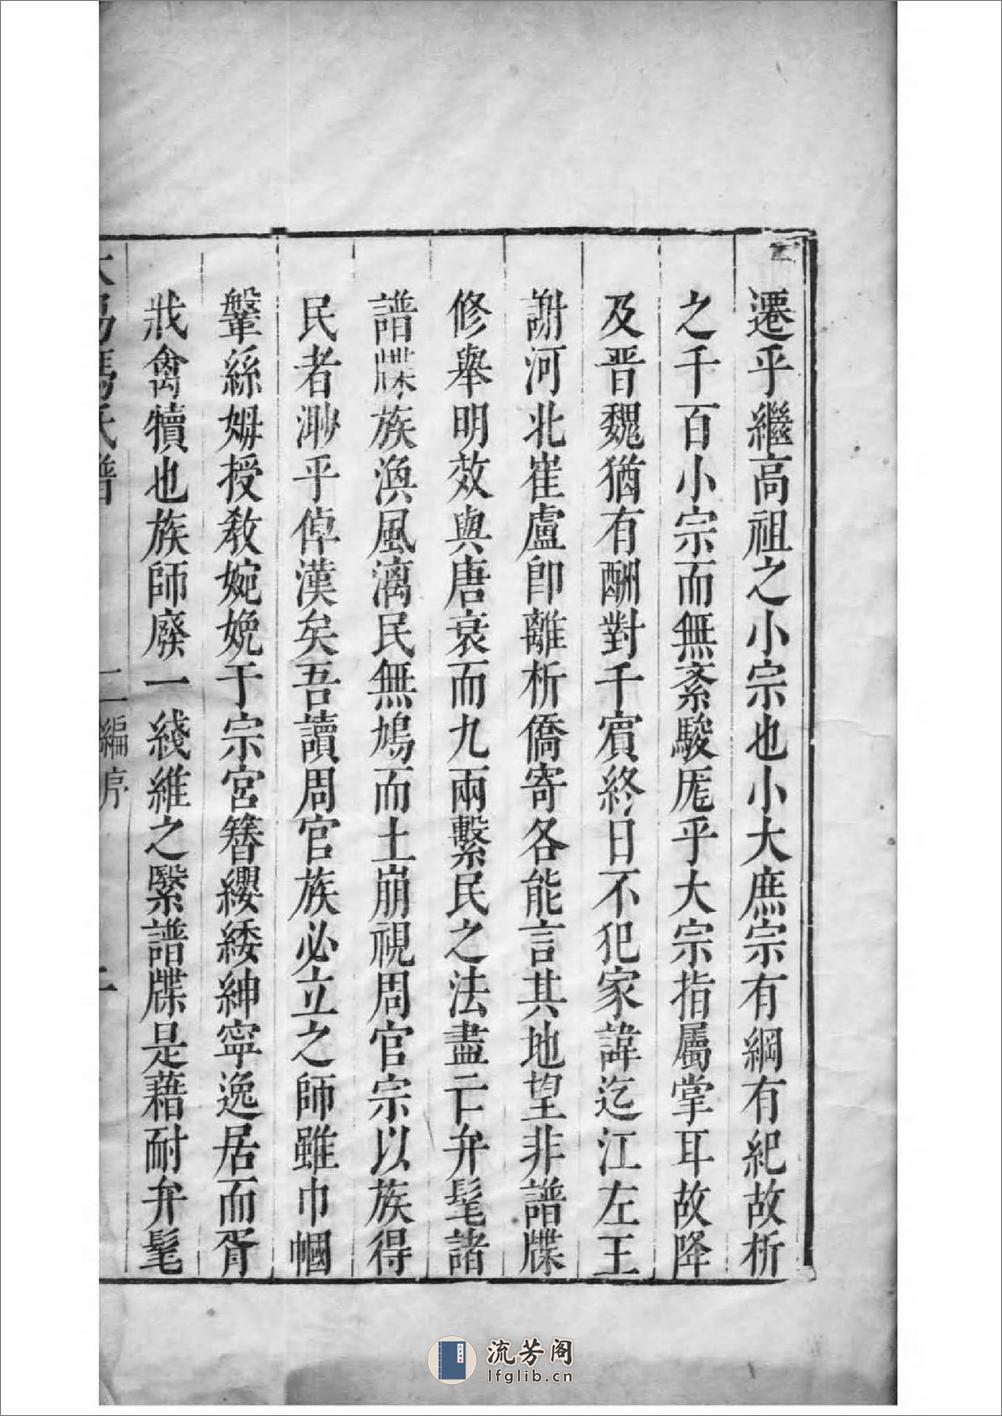 遷乎繼高祖之小宗也小大庶宗有綱有紀故析
之千百小宗而無紊駿厖乎大宗指屬掌耳故降
及晋魏猶有酬對千賔終日不犯家諱迄江左王
謝河北崔盧卽離析僑寄各能言其地望非譜牒
修舉明效與唐衰而九兩繫民之法盡亡弁髦諸
譜牒族渙風漓民無鳩而土崩視周官宗以族得
民者渺乎倬漢矣吾讀周官族必立之師雖巾幗
鞶絲姆授敎婉娩于宗宮簪纓緌紳寧逸居而胥
戕禽犢也族師廢一綫維之繄譜牒是藉耐弁髦
氏譜 二編序 二
流芳阁
lfglib.cn